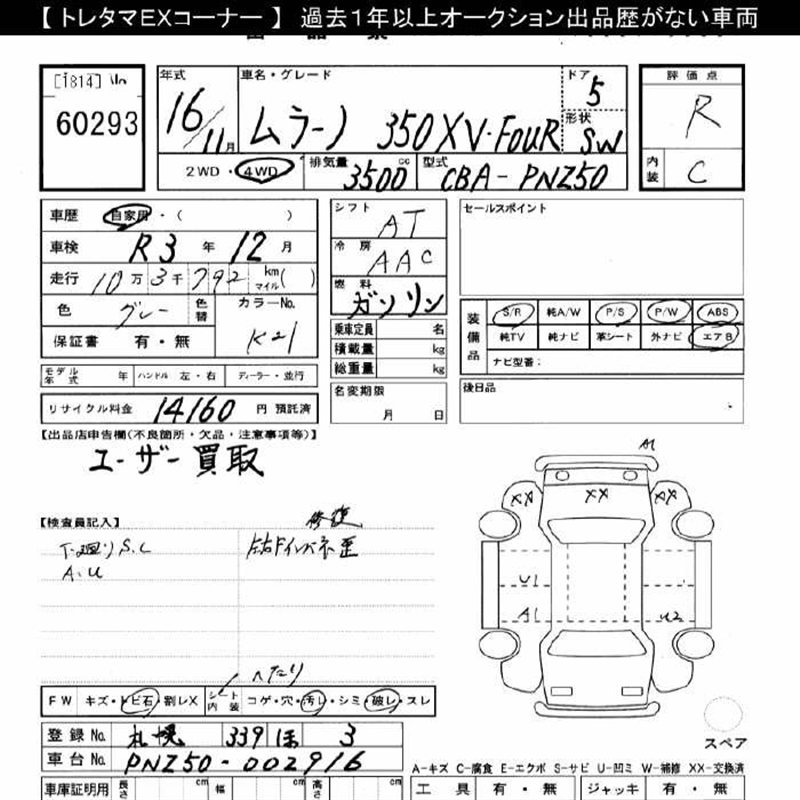 【 トレタマEXコーナー 】 過去1年以上オークション出品歴がない車両
[1814]
60293
年式 車名・グレード ドア 5 評価点
16/11月 ムラーノ 350XV・FOUR 形状 SW R
2WD・4WD 排気量 3500 cc 型式 CBA-PNZ50 内装 C
車歴 自家用・( )
車検 R3 年 12 月
走行 10万3千792 km マイル( )
色 グレー 色替 カラーNo. K21
保証書 有・無
モデル年式 年 ハンドル 左・右 ディーラー・並行
リサイクル料金 14160 円 預託済
シフト AT
冷房 AAC
燃料 ガソリン
乗車定員 名
積載量 kg
総重量 kg
名変期限 月 日
セールスポイント
装備品 S/R 純A/W P/S P/W ABS
純TV 純ナビ 革シート 外ナビ エアB
ナビ型番:
後日品
【出品店申告欄(不良箇所・欠品・注意事項等)】
ユーザー買取
【検査員記入】 修復
下廻りS.C 左右Fインパネ歪
A.U
A1
XX XX XX
U1
A1 U2
スペア
へたり
FW キズ・トビ石・割レX シート内装 コゲ・穴・汚レ・シミ・破レ・スレ
登録No. 札幌 339 ほ 3
車台No. PNZ50-002916
A-キズ C-腐食 E-エクボ S-サビ U-凹ミ W-補修 XX-交換済
車庫証明用 長さ cm 幅 cm 高さ cm 工具 有・無 ジャッキ 有・無